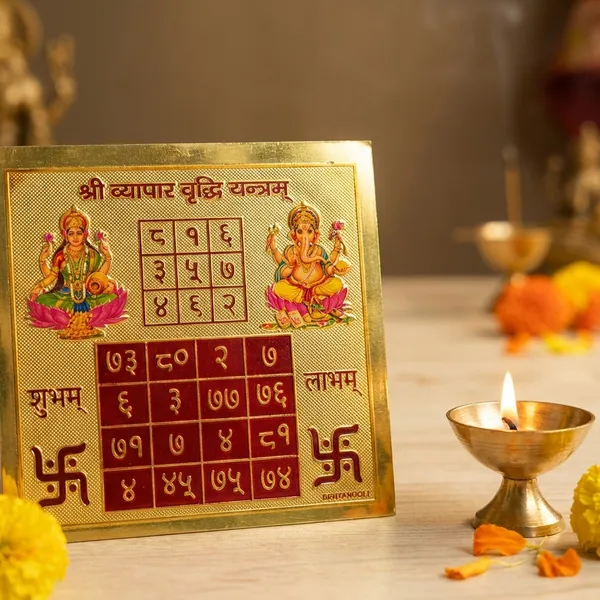 श्री व्यापार वृद्धि यन्त्रम्
८ १ ६
३ ५ ७
४ ६ २
शुभम्
लाभम्
७३ ८० २ ७
६ ३ ७७ ७६
७१ ७ ४ ८१
४ ४५ ७५ ७४
BENTANGOLI